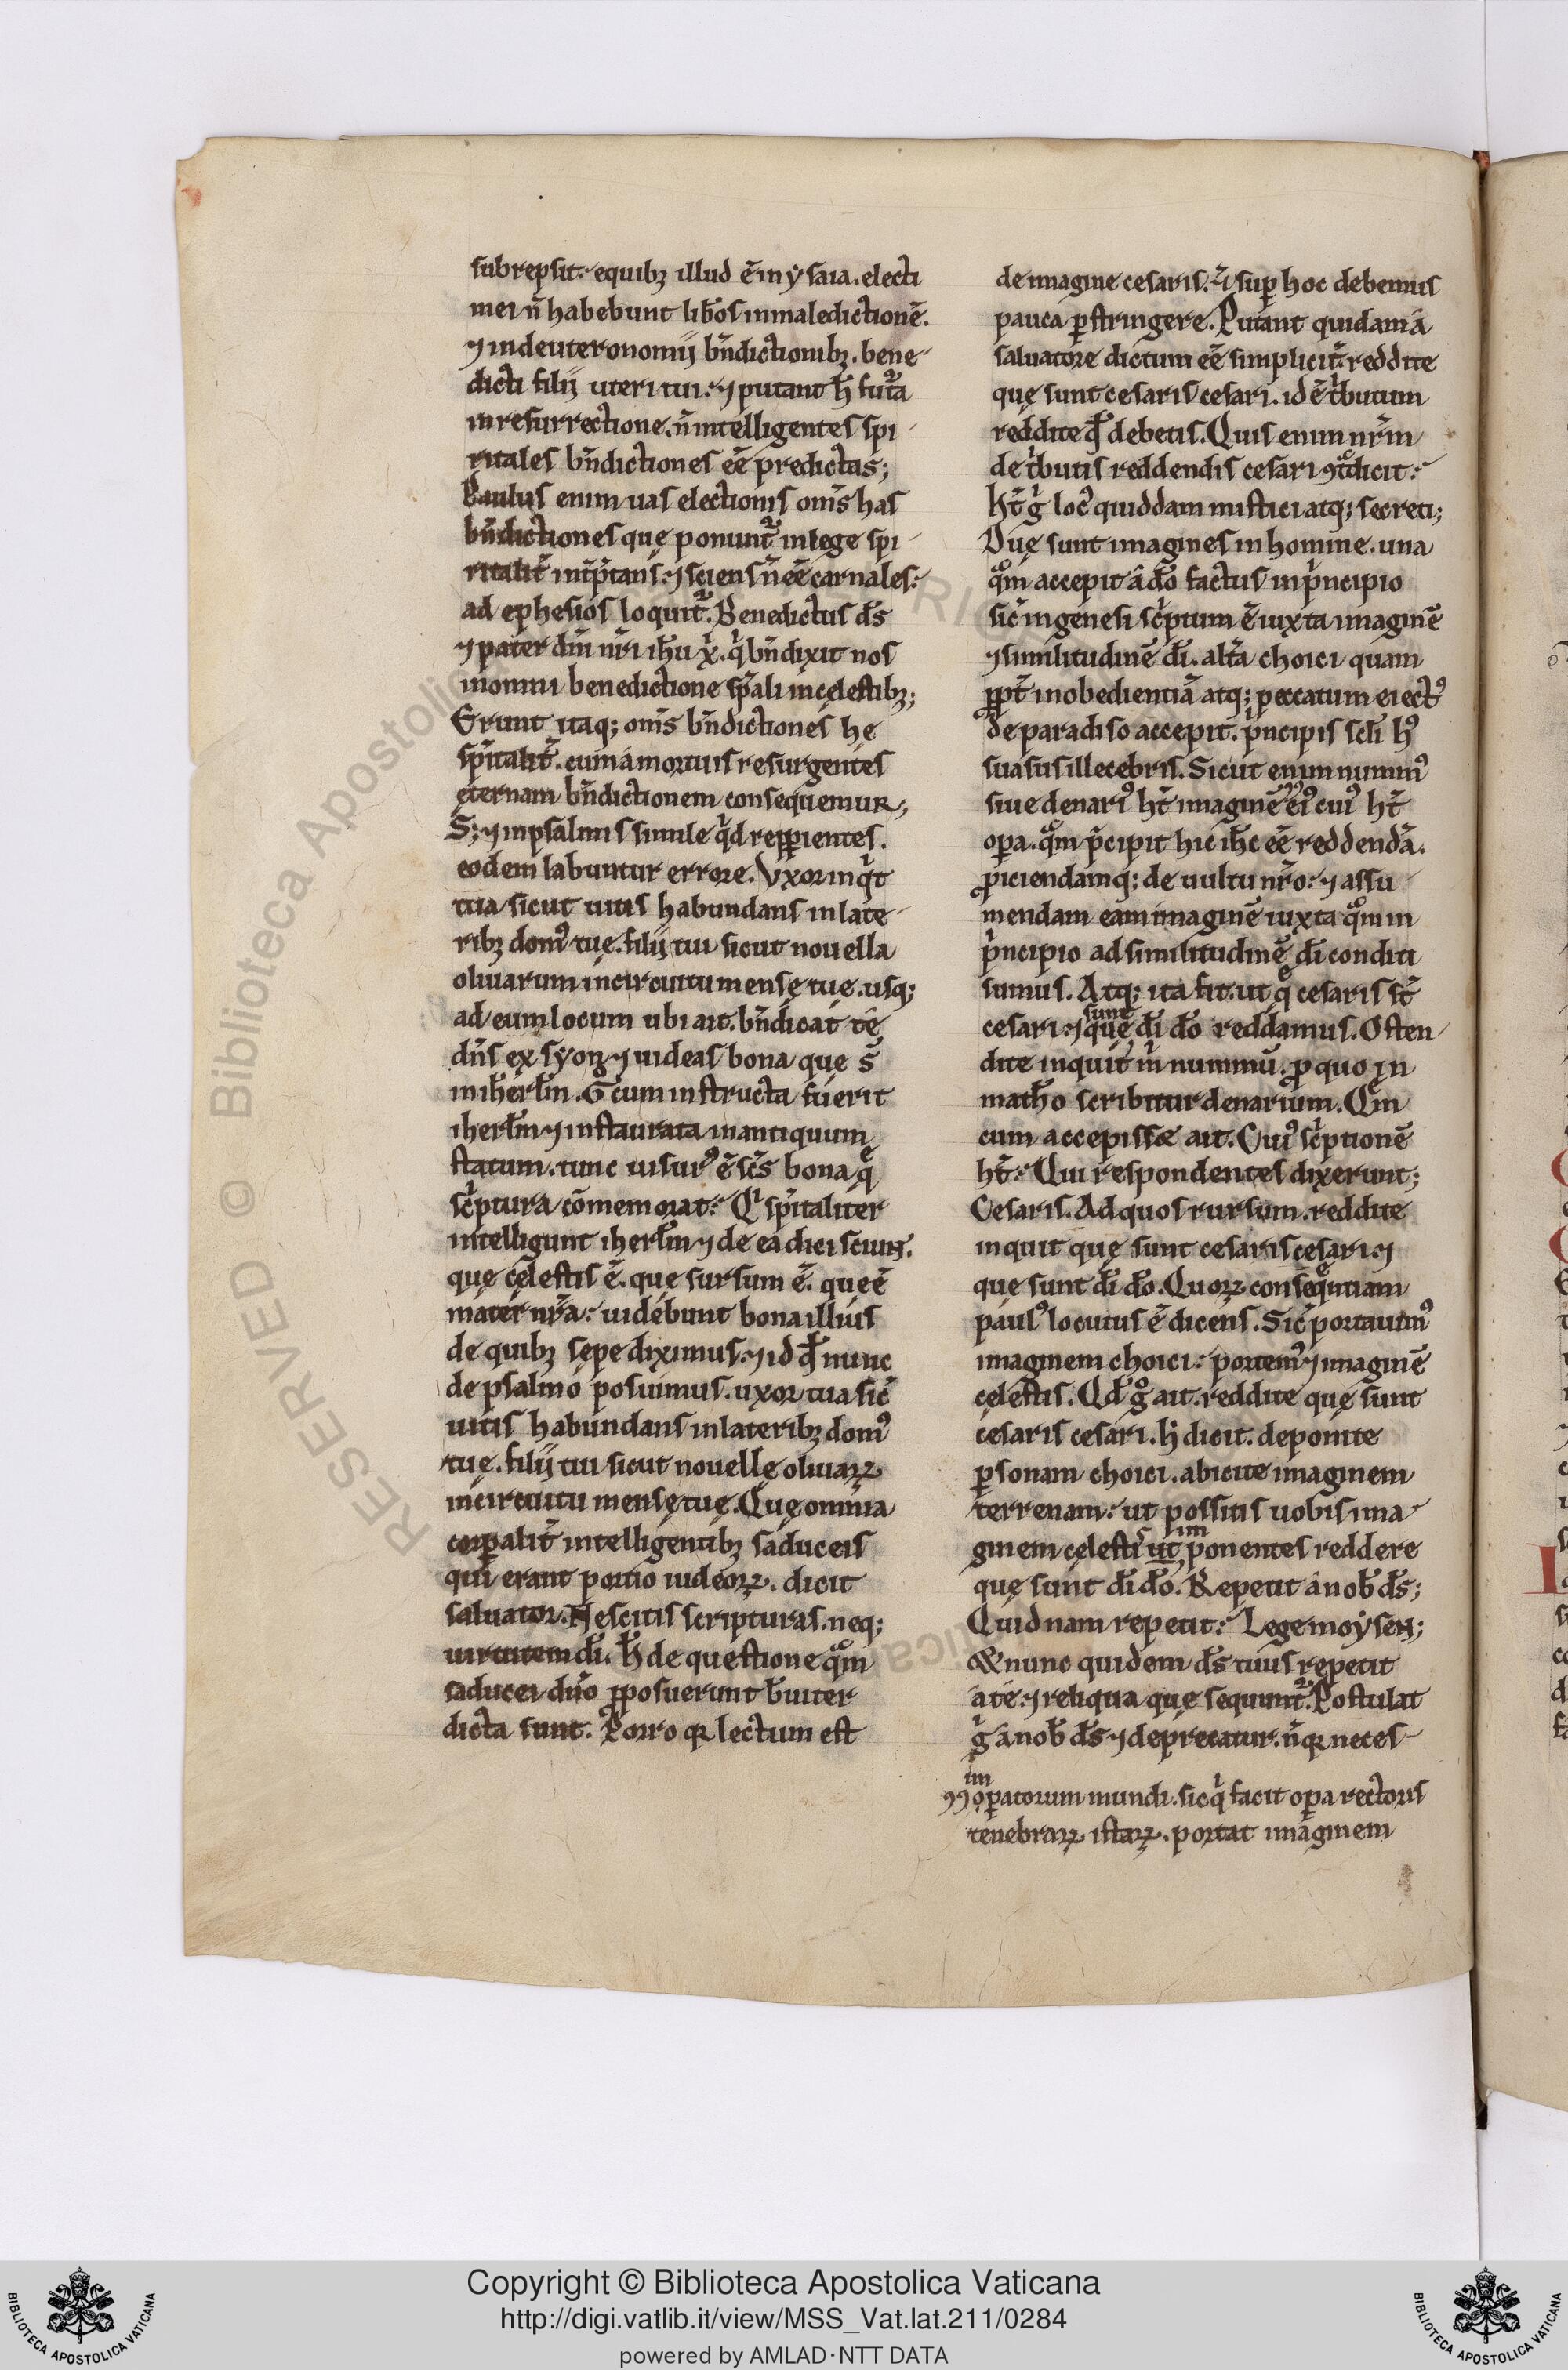 subrepsit. equibꝫ illud ē in ysaia. electi
mei n̄ habebunt lib̄os in maledictionē.
⁊ in deuteronomij bn̄dictionibꝫ. bene-
dicti filij uteri tui. ⁊ putant h̄ fut᷑a
in resurrectione. n̄ intelligentes spi-
ritales bn̄dictiones eē predictas;
Paulus enim uas electionis om̄s has
bn̄dictiones que ponunt᷑ in lege spi-
ritalit̄ int̄p̄tans. ⁊ sciens n̄ eē carnales.
ad ephesios loquit᷑. Benedictus d̄s
⁊ pater dn̄i nr̄i ih̄u x̄. qͥ bn̄dixit nos
in omni benedictione sp̄ali in cęlestibꝫ;
Erunt itaq; om̄s bn̄dictiones hę
sp̄italit̄. cum a mortuis resurgentes
ęternam bn̄dictionem consequemur;
S; ⁊ in psalmis simile qͥd repꝑientes.
eodem labuntur errore. Vxor inqͥt
tua sicut uitis habundans in late-
ribꝫ domꝰ tuę. filij tui sicut nouella
oliuarum in circuitu mensę tuę. usq;
ad eum locum ubi ait. bn̄dicat te
dn̄s ex syon ⁊ uideas bona que s̄
in iherl̄m. Et cum instructa fuerit
iherl̄m ⁊ instaurata in antiquum
statum. tunc uisurꝰ ē sc̄s bona q̨
scͥptura cōmemorat. Qͥ sp̄italiter
intelligunt iherl̄m ⁊ de ea dici sciunt.
quę cęlestis ē. quę sursum ē. que ē
mater nr̄a. uidebunt bona illius
de quibꝫ sepe diximus. ⁊ id qd̄ nunc
de psalmo posuimus. uxor tua sic̄
uitis habundans in lateribꝫ domꝰ
tuę. filij tui sicut nouellę oliuaꝝ
in circuitu mensę tuę. Quę omnia
corꝑalit̄ intelligentibꝫ saduceis
qui erant portio iudeoꝝ. dicit
saluator. Nescitis scripturas. neq;
uirtutem dī. H̄ de questione qͦm
saducei dn̄o ꝓposuerunt b̄uiter
dicta sunt. Porro qꝛ lectum est
de imagine cesaris. ⁊ sup hoc debemus
pauca ꝑstringere. Putant quidam a
saluatore dictum eē simplicit̄. reddite
quę sunt cesaris cesari. id ē tͥbutum
reddite qd̄ debetis. Quis enim nr̄m
de tͥbutis reddendis cesari ꝯtͣdicit.
Ht̄ gͥ locꝰ quiddam mistici atq; secreti;
Duę sunt imagines in homine. una
qͦm accepit a do factus in pͥncipio
sic̄ in genesi scͥptum ē iuxta imaginē
⁊ similitudinē dī. alt̄a choici quam
ꝓpt̄ inobedientiā atq; peccatum eiectꝰ
de paradiso accepit. pͥncipis scl̄i hꝰ
suasus illecebris. Sicut enim nummꝰ
siue denariꝰ ht̄ imaginē eiꝰ cuiꝰ ht̄
oꝑa. qͦm p̄cipit hic ih̄c eē reddendā.
ꝓiciendamq; de uultu nr̄o. ⁊ assu-
mendam eam imaginē iuxta qͦm in
pͥncipio ad similitudinē dī conditi
sumus. Atq; ita fit. ut q̨ cesaris st̄
cesari. ⁊ quę sunt dī do reddamus. Osten-
dite inquit m̄ nummū. ꝓ quo in
matheo scribitur denarium. Qm̄
cum accepissęt ait. Cuiꝰ scͥptionē
ht̄. Qui respondentes dixerunt;
Cesaris. Ad quos rursum. reddite
inquit quę sunt cesaris cesari. ⁊
que sunt dī do. Quoꝝ conseq̄ntiam
paulꝰ locutus ē dicens. Sic̄ portauimꝰ
imaginem choici. portemꝰ ⁊ imaginē
cęlestis. Qd̄ gͦ ait. reddite quę sunt
cesaris cesari. h̄ dicit. deponite
ꝑsonam choici. abicite imaginem
terrenam. ut possitis uobis ima-
ginem cęlestis im ut ponentes reddere
quę sunt dī do. Repetit a nob̄ d̄s;
Quid nam repetit. Lege moysen;
& nunc quidem d̄s tuus repetit
a te. ⁊ reliqua quę sequunt᷑. Postulat
gͥ a nob̄ d̄s ⁊ deprecatur. n̄ qꝛ neces-
im
oꝑatorum mundi. sic qͥ facit oꝑa rectoris
tenebraꝝ istaꝝ. portat imaginem
RESERVED © Biblioteca Apostolica
Copyright © Biblioteca Apostolica Vaticana
http://digi.vatlib.it/view/MSS_Vat.lat.211/0284
powered by AMLAD·NTT DATA
BIBLIOTECA APOSTOLICA VATICANA
BIBLIOTECA APOSTOLICA VATICANA